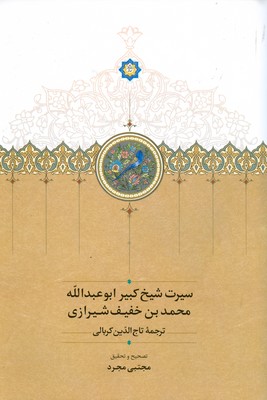 سیرت شیخ کبیر ابوعبدالله
محمد بن خفیف شیرازی
ترجمهٔ تاج‌الدین کربالی
تصحیح و تحقیق
مجتبی مجرد